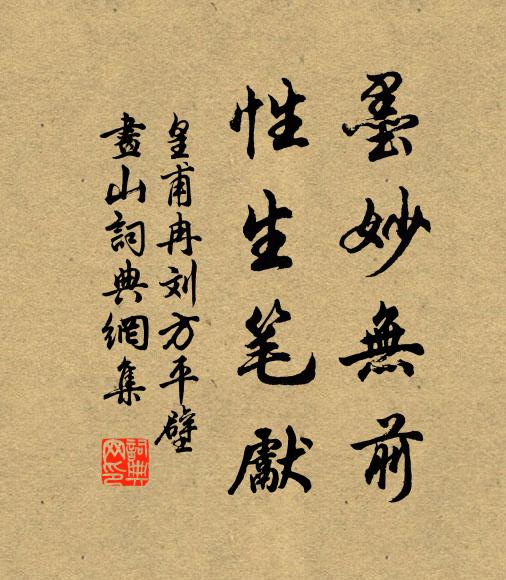 墨妙無前
性生笔獻
皇甫冉刘方平壁
畫山詞典網集
詞典
网印